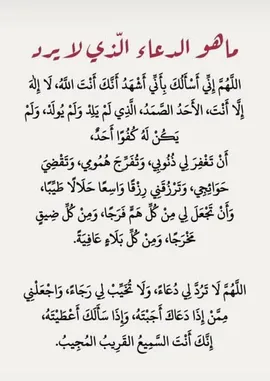 ماهو الدعاء الّذي لا يرد
اللَّهُمَّ إِنِّي أَسْأَلُكَ بِأَنِّي أَشْهَدُ أَنَّكَ أَنْتَ اللَّهُ، لَا إِلَهَ
إِلَّا أَنْتَ، الأَحَدُ الصَّمَدُ، الَّذِي لَمْ يَلِدْ وَلَمْ يُولَدْ، وَلَمْ
يَكُنْ لَهُ كُفُوًا أَحَدٌ،
أَنْ تَغْفِرَ لِي ذُنُوبِي، وَتُفَرِّجَ هُمُومِي، وَتَقْضِيَ
حَوَائِجِي، وَتَرْزُقَنِي رِزْقًا وَاسِعًا حَلَالًا طَيِّبًا،
وَأَنْ تَجْعَلَ لِي مِنْ كُلِّ هَمٍّ فَرَجًا، وَمِنْ كُلِّ ضِيقٍ
مَخْرَجًا، وَمِنْ كُلِّ بَلَاءٍ عَافِيَةً.
اللَّهُمَّ لَا تَرُدَّ لِي دُعَاءً، وَلَا تُخَيِّبْ لِي رَجَاءً، وَاجْعَلْنِي
مِمَّنْ إِذَا دَعَاكَ أَجَبْتَهُ، وَإِذَا سَأَلَكَ أَعْطَيْتَهُ،
إِنَّكَ أَنْتَ السَّمِيعُ القَرِيبُ المُجِيبُ.